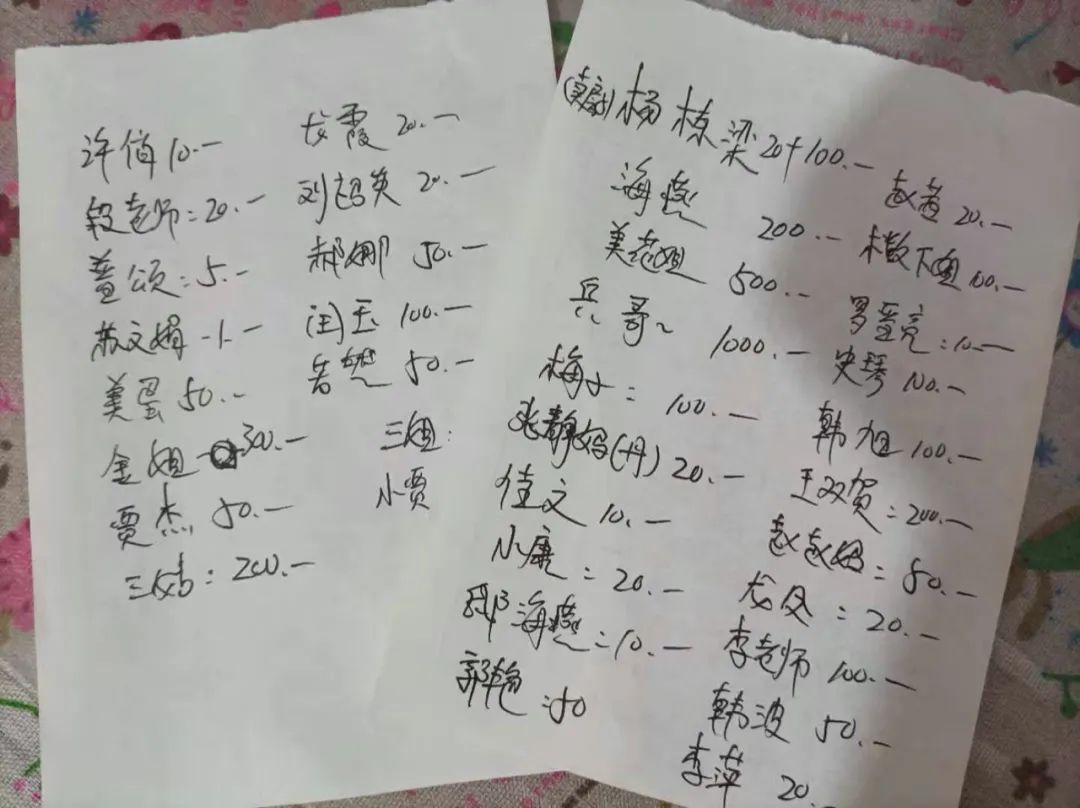 许俏 10.—
段老师:20.—
姜颂:5.—
苏文娟 -1.—
美蛋 50.—
金姐 300.—
贾杰 50.—
三姑:200.—
龙霞 20.—
刘超英 20.—
郝娜 50.—
闫玉 100.—
若然 50.—
三姐:
小贾
杨栋梁 20+100.—
海燕 200.—
美老姐 500.—
兵哥~ 1000.—
梅子: 100.—
张静妈(丹) 20.—
佳文 10.—
小康:20.—
邵海燕:10.—
郭艳:50
赵茜 20.—
下姐 100.—
罗亮:10.—
史琴 100.—
韩旭 100.—
王双贺:200.—
赵赵姐:50.—
龙风:20.—
李老师 100.—
韩波 50.—
李萍 20.